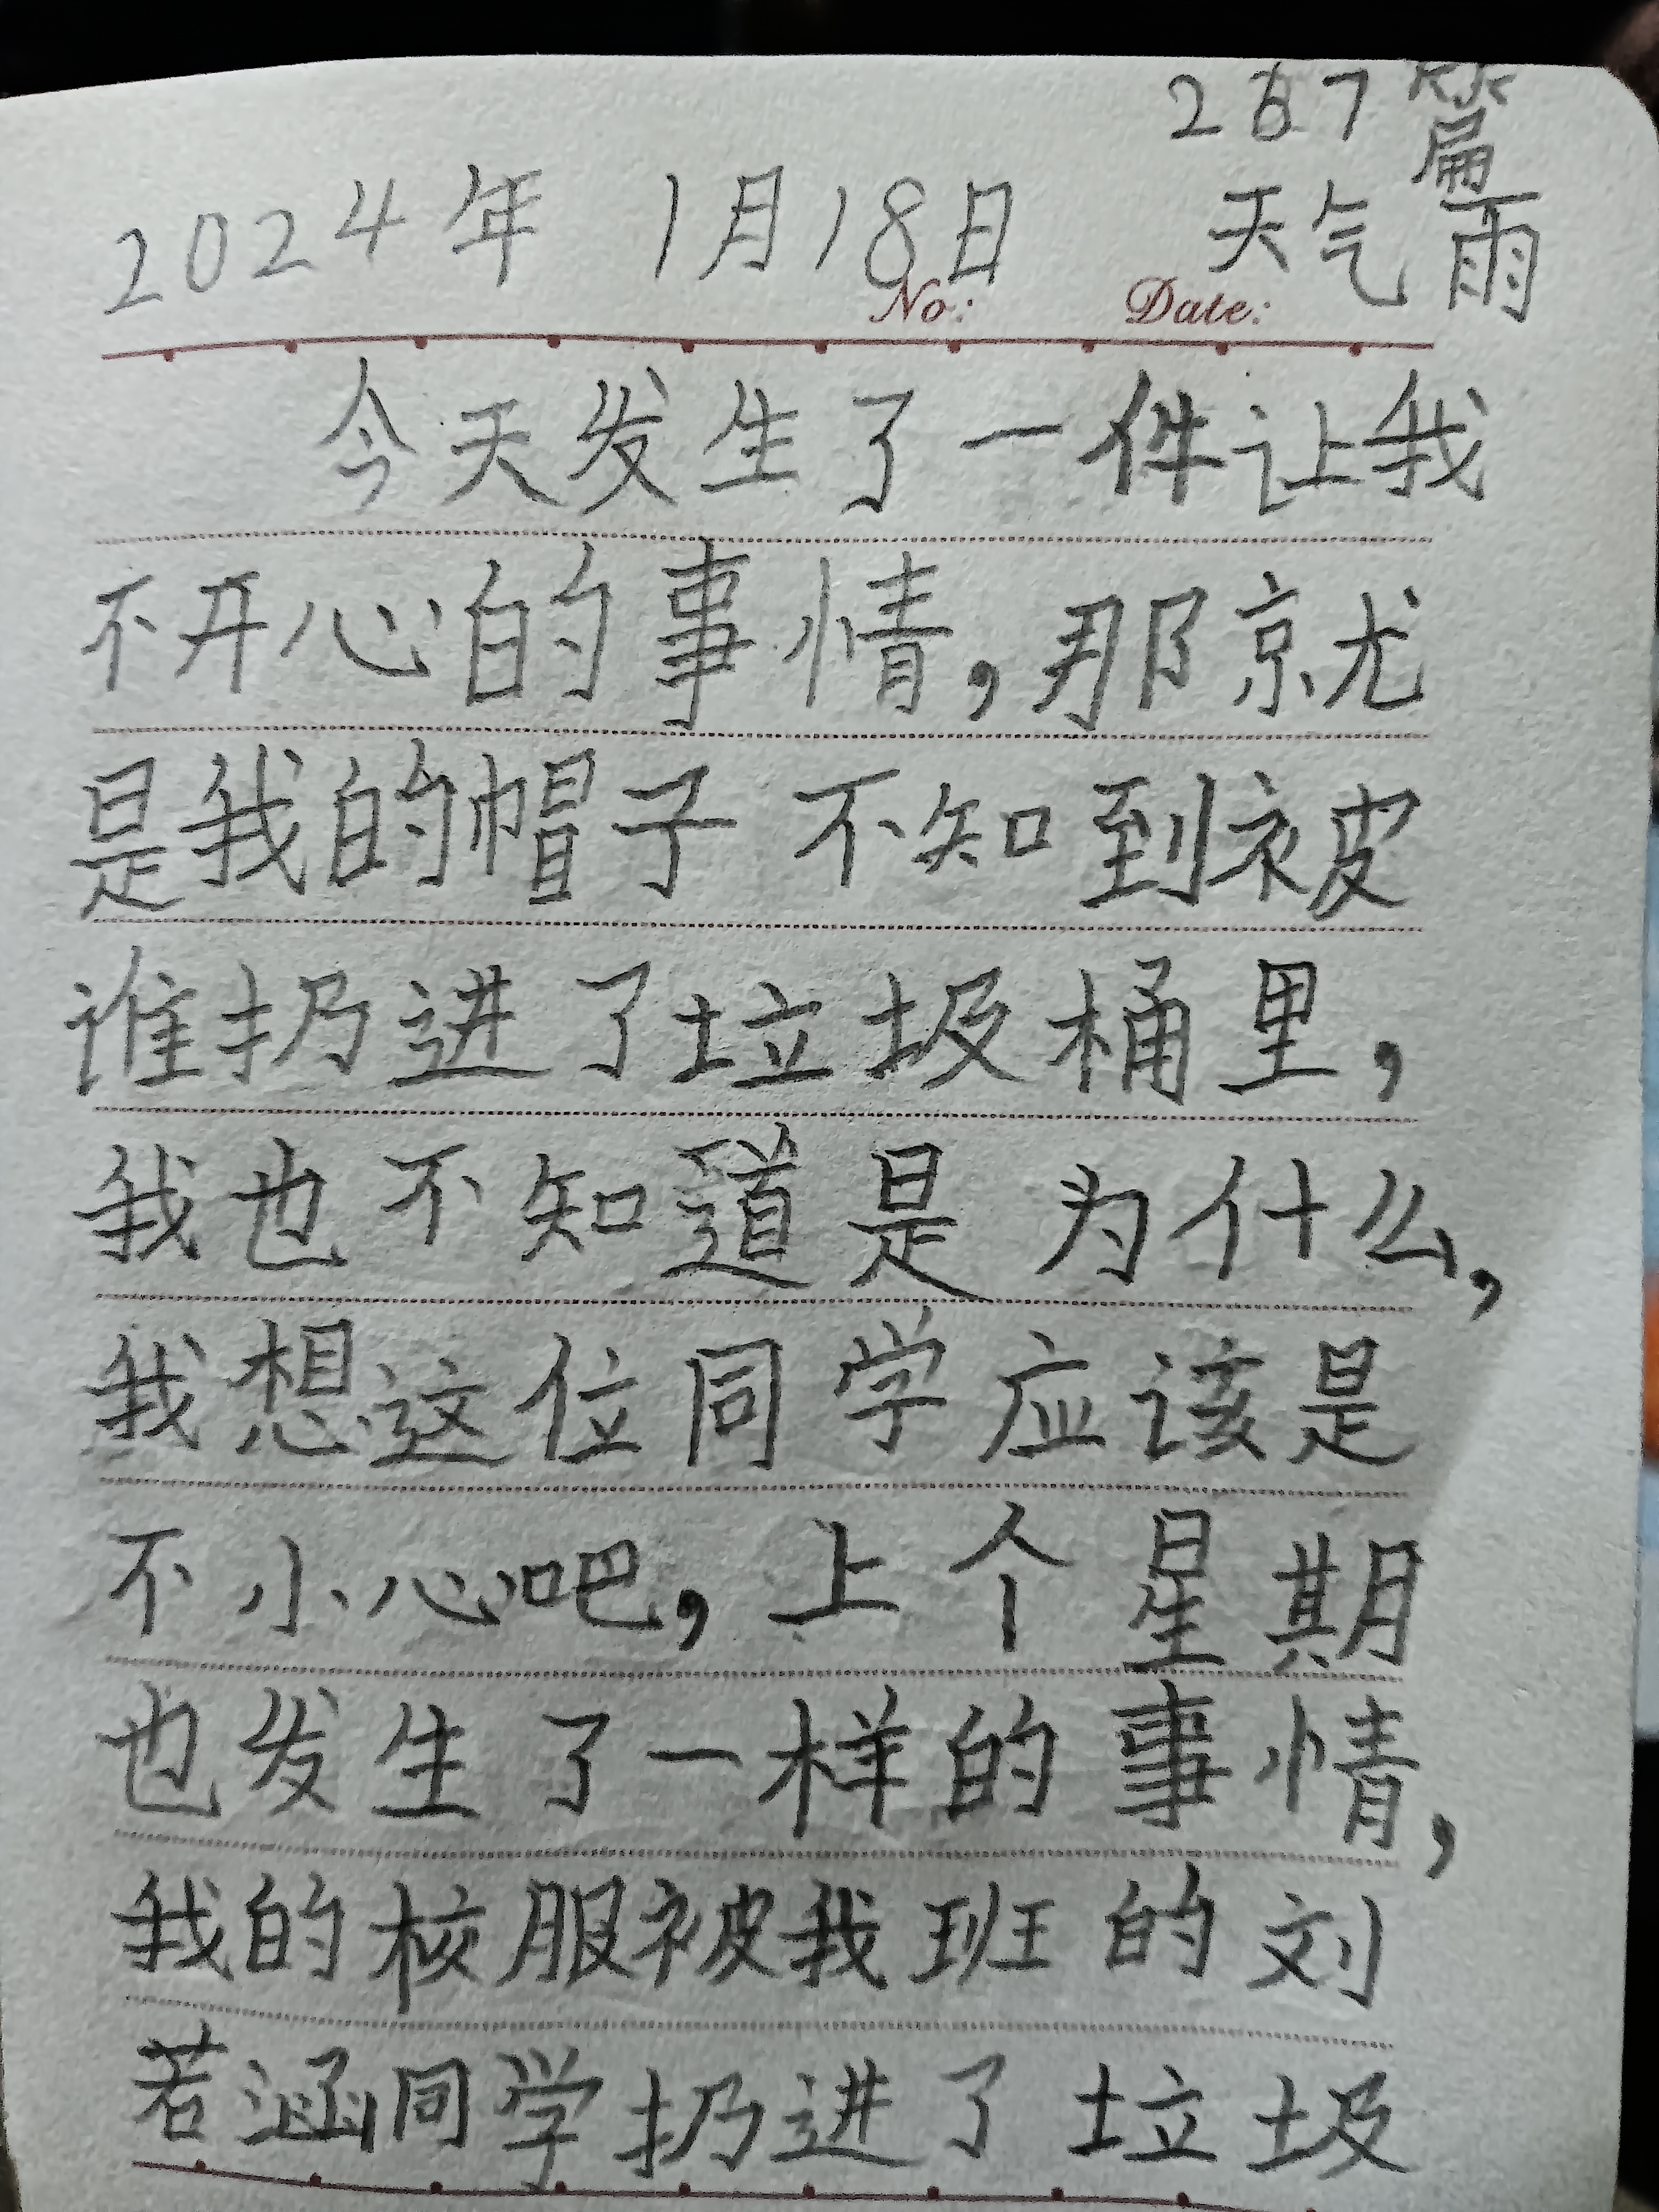 267篇
2024年 1月18日 天气雨
No: Date:
今天发生了一件让我
不开心的事情,那就
是我的帽子不知到被
谁扔进了垃圾桶里,
我也不知道是为什么,
我想这位同学应该是
不小心吧,上个星期
也发生了一样的事情,
我的校服被我班的刘
若涵同学扔进了垃圾